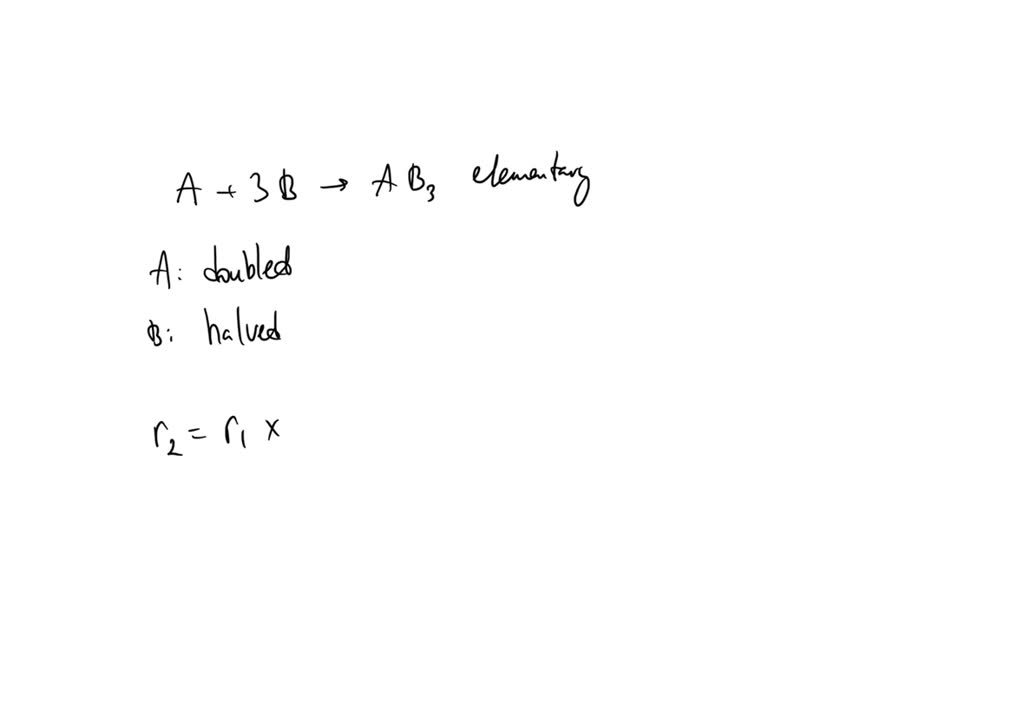 A + 3B → AB₃ elementary
A: doubled
B: halved
r₂ = r₁ ×